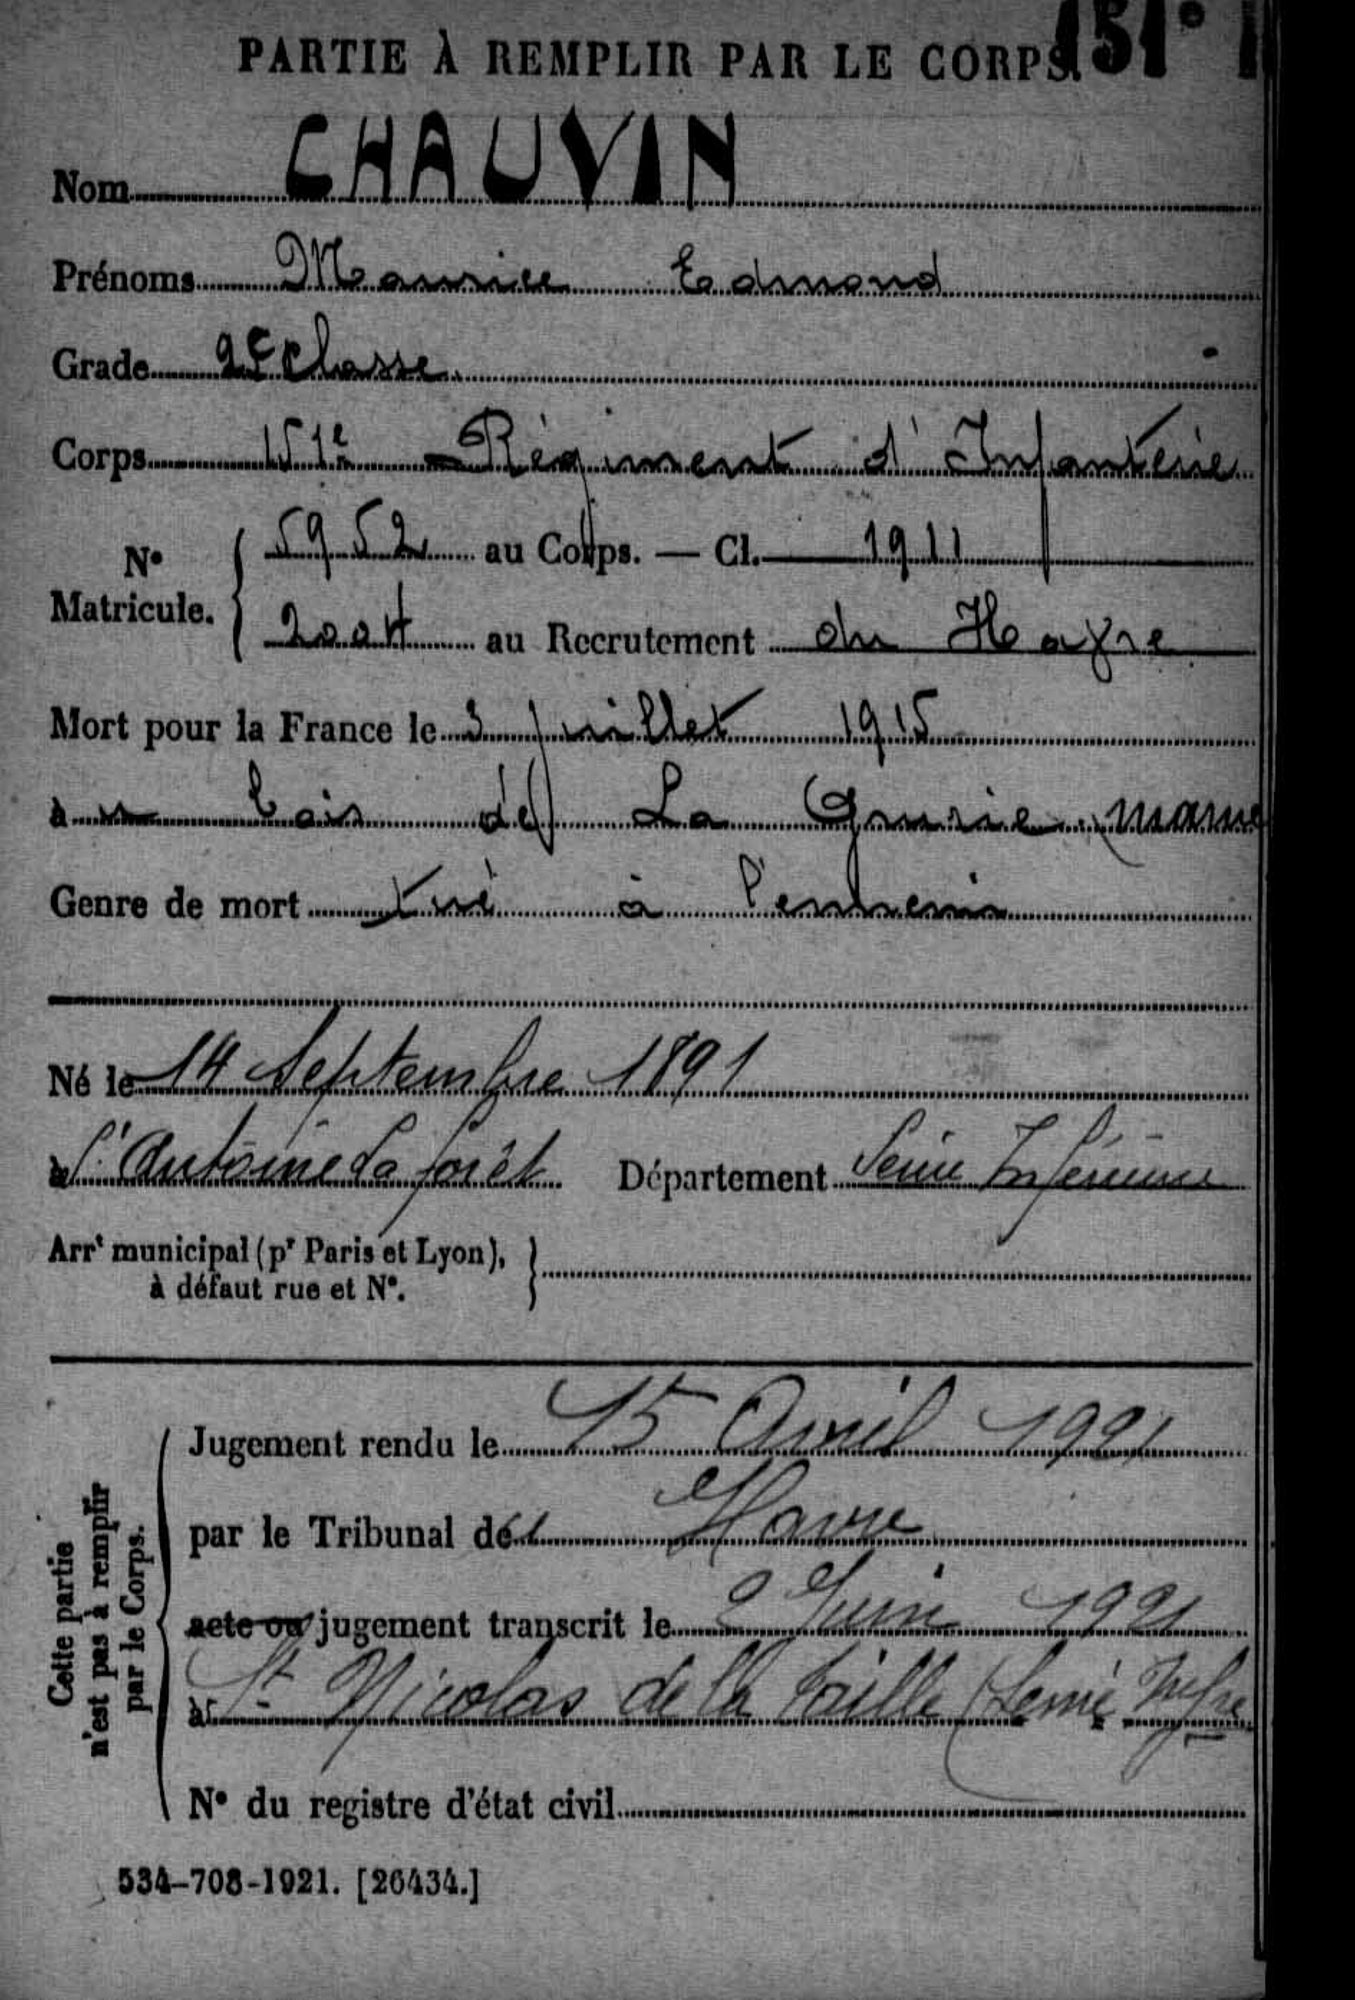 PARTIE À REMPLIR PAR LE CORPS.
151°
Nom CHAUVIN
Prénoms Maurice Edmond
Grade 2e Classe
Corps 151e Régiment d'Infanterie
N° Matricule. { 5952 au Corps. — Cl. 1911
2004 au Recrutement du Havre
Mort pour la France le 3 juillet 1915
au bois de La Grurie Marne
Genre de mort tué à l'ennemi
Né le 14 Septembre 1891
à St Antoine La forêt Département Seine Inférieure
Arrt municipal (pr Paris et Lyon),
à défaut rue et N°.
Cette partie n'est pas à remplir par le Corps.
Jugement rendu le 15 Avril 1921
par le Tribunal de Havre
acte ou jugement transcrit le 2 Juin 1921
à St Nicolas de la Taille (Seine Infre
N° du registre d'état civil
534-708-1921. [26434.]